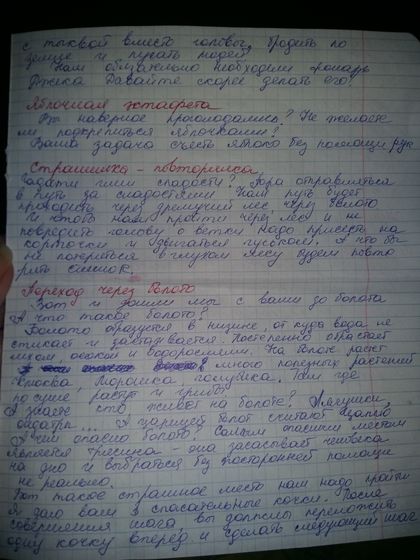 с тыквой вместо головы, бродить по
земле и пугать людей.
Нам обязательно необходим фонарь
Джека Давайте скорее делать его!
Яблочная эстафета
Вы наверное проголодались? Не желаете
ли подкрепиться яблочками?
Ваша задача съесть яблоко без помощи рук
Страшилка - повторялка
Гадости или сладости? Пора отправляться
в путь за сладостями Наш путь будет
проходить через дремучий лес через болото
И чтобы нам пройти через лес и не
повредить голову о ветки надо присесть на
корточки и двигаться гуськом. А что бы
не потеряться в глухом лесу будем повто
рять стишок.
Переход через болото
Вот и дошли мы с вами до болота
А что такое болото?
Болото образуется в низине, от куда вода не
стекает и застаивается. Постепенно обрастает
мхом осокой и водорослями. На болоте растет
много полезных растений
клюква, Морошка, голубика. Там где
по суше, растут и грибы.
А знаете кто живет на болоте? Лягушки,
ондатры... А царицей болот считают цаплю
А чем опасно болото? Самым опасным местом
является трясина - она засасывает человека
на дно и выбраться без посторонней помощи
не реально.
Вот такое страшное место нам надо пройти
Я дам вам 2 спасательные кочки. После
совершения шага, вы должны переложить
одну кочку вперед и сделать следующий шаг